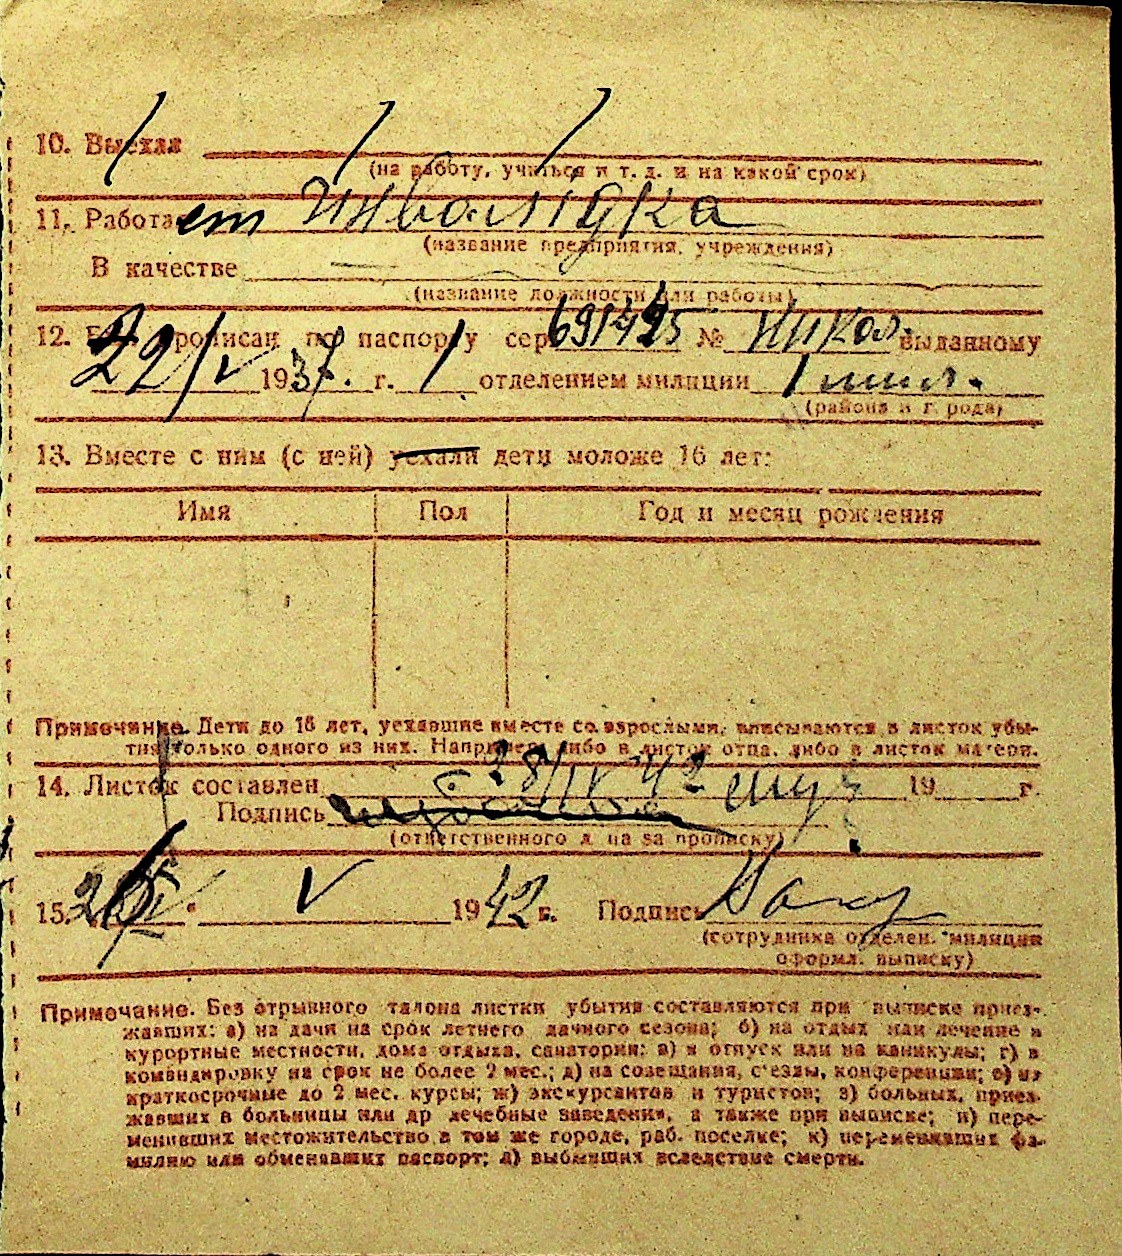 10. Выехал
(на работу, учиться и т. д. и на какой срок)
11. Работает инвалидка
(название предприятия, учреждения)
В качестве
(название должности или работы)
12. Был прописан по паспорту сер 691495 № Никол. выданному
22/V 1937. г. 1 отделением милиции
(района и г. рода)
13. Вместе с ним (с ней) уехали дети моложе 16 лет:
Имя Пол Год и месяц рождения
Примечание. Дети до 16 лет, уехавшие вместе со взрослыми, вписываются в листок убы-
тия только одного из них. Например, либо в листок отца, либо в листок матери.
14. Листок составлен 28/IV 42 19 г.
Подпись
(ответственного л ца за прописку)
15. V 1942 г. Подпись
(сотрудника отделен. милиции
оформл. выписку)
Примечание. Без отрывного талона листки убытия составляются при выписке приез-
жавших: а) на дачи на срок летнего дачного сезона; б) на отдых или лечение в
курортные местности, дома отдыха, санатории; в) в отпуск или на каникулы; г) в
командировку на срок не более 2 мес.; д) на совещания, с'езды, конференции; е) на
краткосрочные до 2 мес. курсы; ж) экскурсантов и туристов; з) больных, приез-
жавших в больницы или др лечебные заведения, а также при выписке; и) пере-
менивших местожительство в том же городе, раб. поселке; к) переменивших фа-
милию или обменявших паспорт; л) выбывших вследствие смерти.